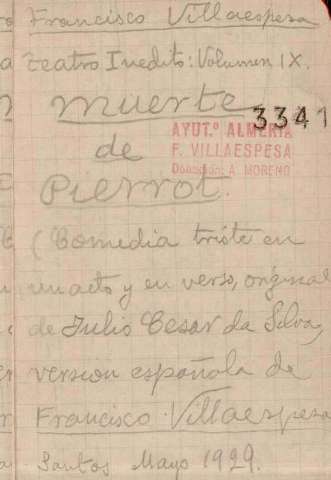 Francisco Villaespesa
teatro Inedito: Volumen IX.
Muerte
3341
AYUT.º ALMERIA
F. VILLAESPESA
Donación: A. MORENO
de
Pierrot.
(Comedia triste en
un acto y en verso, original
de Julio Cesar da Silva,
version española de
Francisco Villaespesa
Santos Mayo 1929.